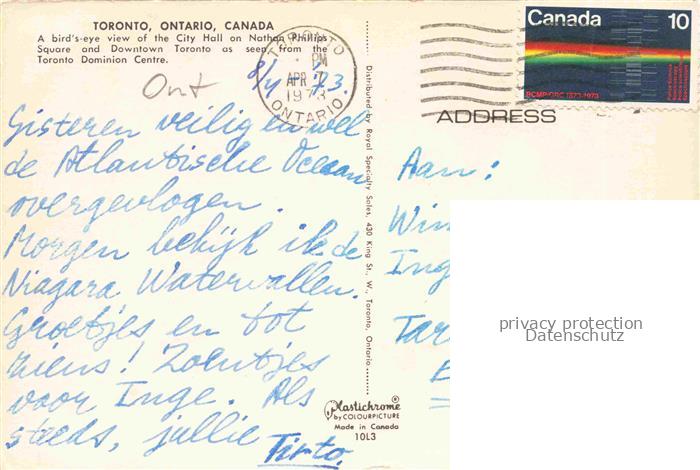 TORONTO, ONTARIO, CANADA
A bird's-eye view of the City Hall on Nathan Phillips
Square and Downtown Toronto as seen from the
Toronto Dominion Centre.
Ont
8/4 '73.
TORONTO
PM
APR
1973
ONTARIO
Canada 10
RCMP·GRC 1873·1973
ADDRESS
Gisteren veilig en wel
de Atlantische Oceaan
overgevlogen.
Morgen bekijk ik de
Niagara Watervallen.
Groetjes en tot
ziens! Zoentjes
voor Inge. Als
steeds, jullie
Tinto.
Distributed by Royal Specialty Sales, 430 King St., W., Toronto, Ontario
Plastichrome ®
by COLOURPICTURE
Made in Canada
10L3
Aan:
Win
Inge
Tar
privacy protection
Datenschutz